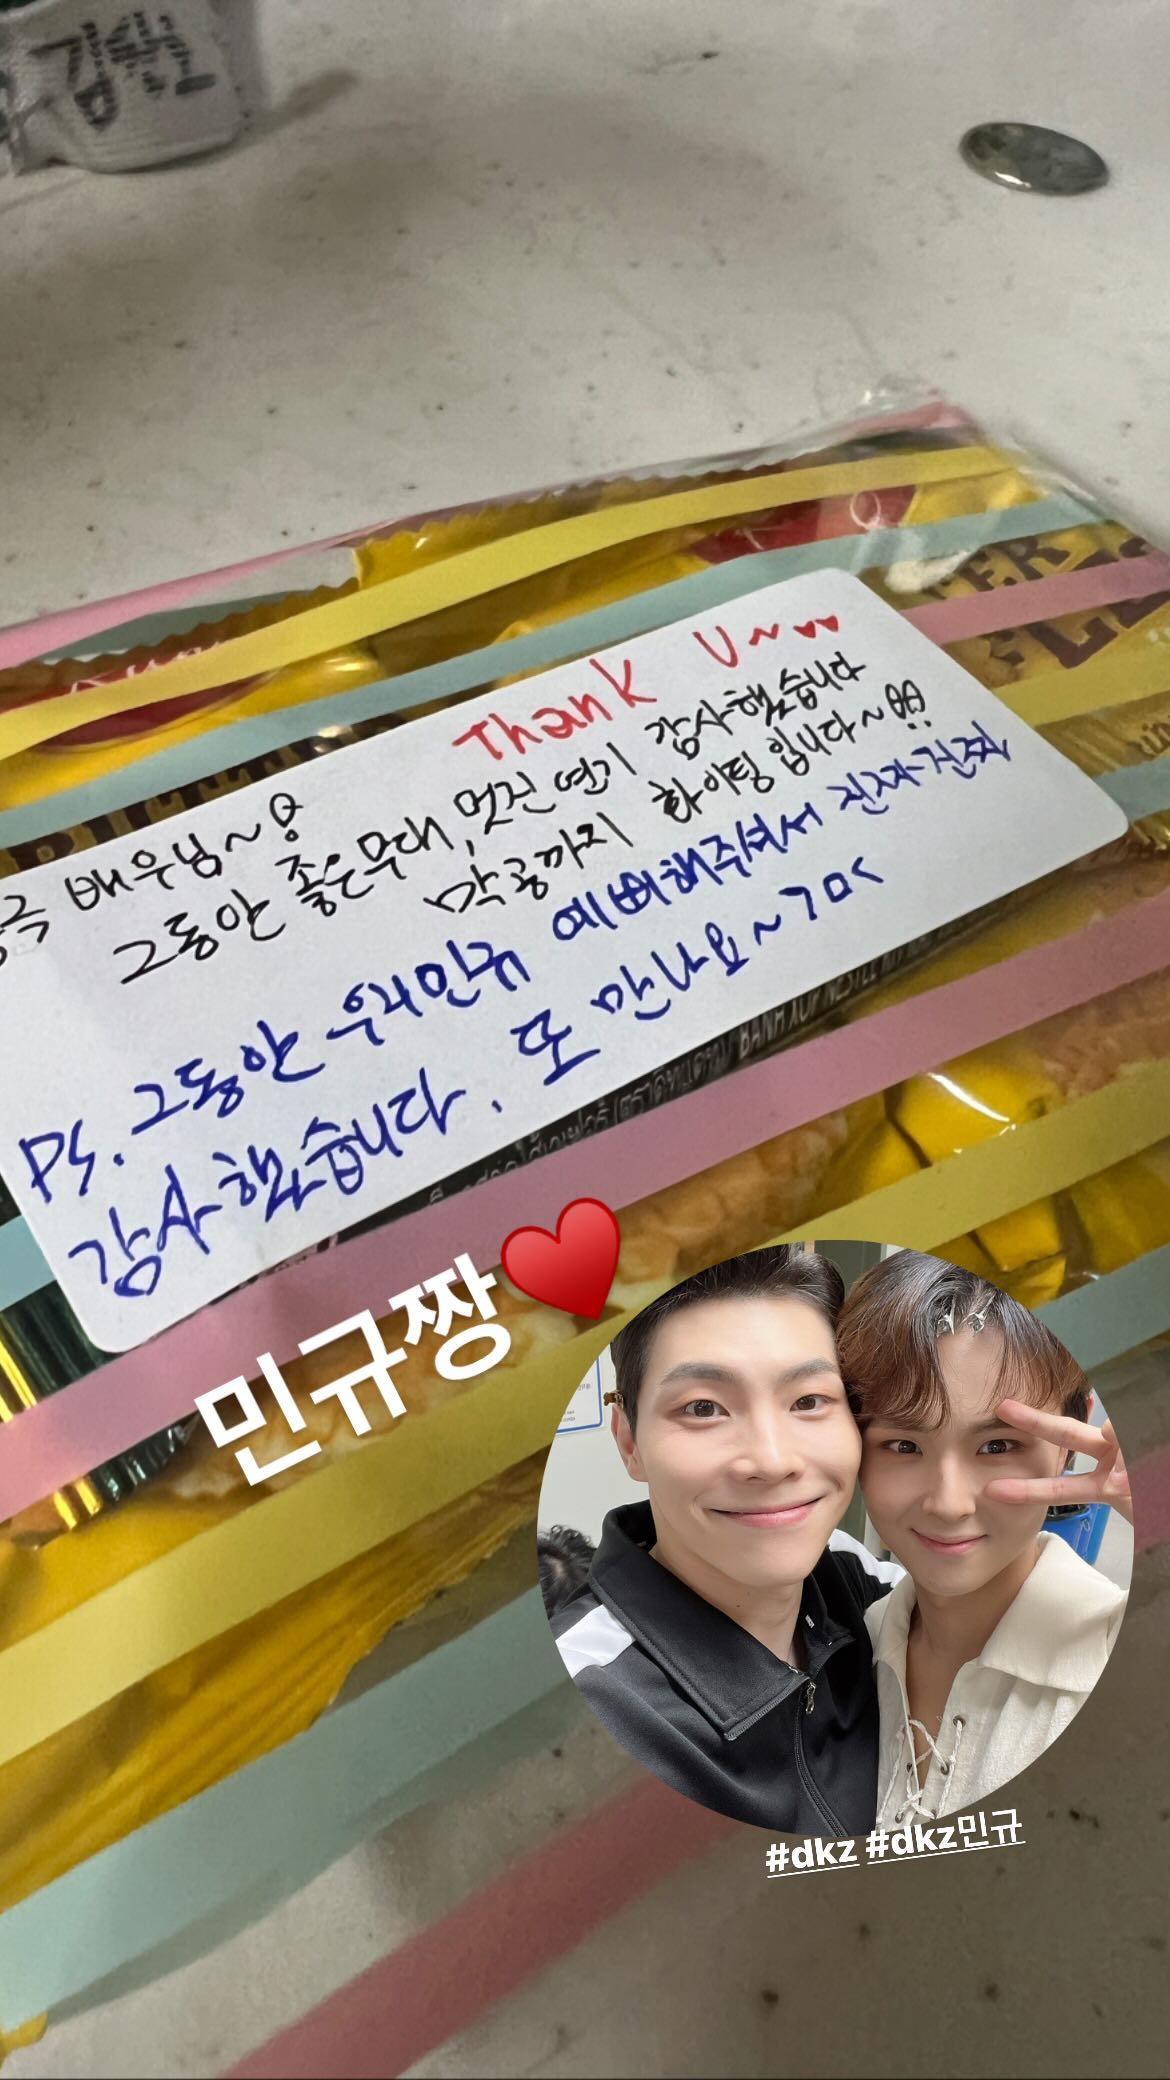 Thank U~♥♥
배우님~
그동안 좋은무대, 멋진 연기 감사했습니다
막공까지 화이팅입니다~
PS. 그동안 우리민규 예뻐해주셔서 진짜진짜
감사했습니다. 또 만나요~ ㄱㅁ<
민규짱❤️
#dkz #dkz민규